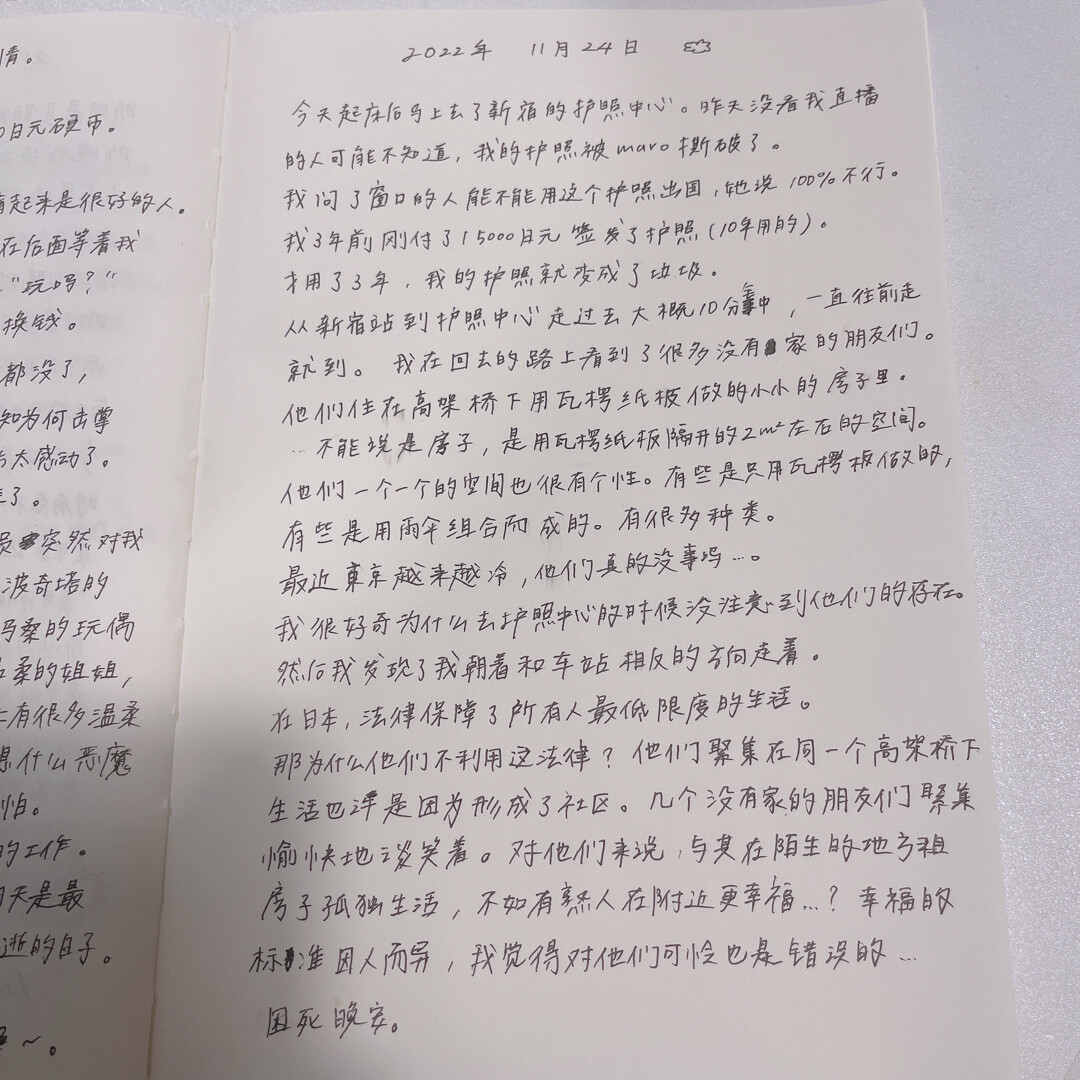 情。
0日元硬币。
看起来是很好的人。
在后面等着我
"玩吗?"
换钱。
都没了,
知为何击掌
太感动了。
了。
突然对我
波奇塔的
玛桑的玩偶
柔的姐姐,
有很多温柔
想什么恶魔
怕。
的工作。
天是最
逝的日子。
~。
2022年 11月24日
今天起床后马上去了新宿的护照中心。昨天没看我直播
的人可能不知道,我的护照被maro撕破了。
我问了窗口的人能不能用这个护照出国,她说100%不行。
我3年前刚付了15000日元签发了护照(10年用的)。
才用了3年,我的护照就变成了垃圾。
从新宿站到护照中心走过去大概10分钟,一直往前走
就到。 我在回去的路上看到了很多没有家的朋友们。
他们住在高架桥下用瓦楞纸板做的小小的房子里.
…不能说是房子,是用瓦楞纸板隔开的2m²左右的空间。
他们一个一个的空间也很有个性。有些是只用瓦楞板做的,
有些是用雨伞组合而成的。有很多种类。
最近東京越来越冷,他们真的没事吗…。
我很好奇为什么去护照中心的时候没注意到他们的存在。
然后我发现了我朝着和车站相反的方向走着。
在日本,法律保障了所有人最低限度的生活。
那为什么他们不利用这法律?他们聚集在同一个高架桥下
生活也许是因为形成了社区。几个没有家的朋友们聚集
愉快地谈笑着。对他们来说,与其在陌生的地方租
房子孤独生活,不如有熟人在附近更幸福…?幸福的
标准因人而异,我觉得对他们可怜也是错误的…
困死晚安。